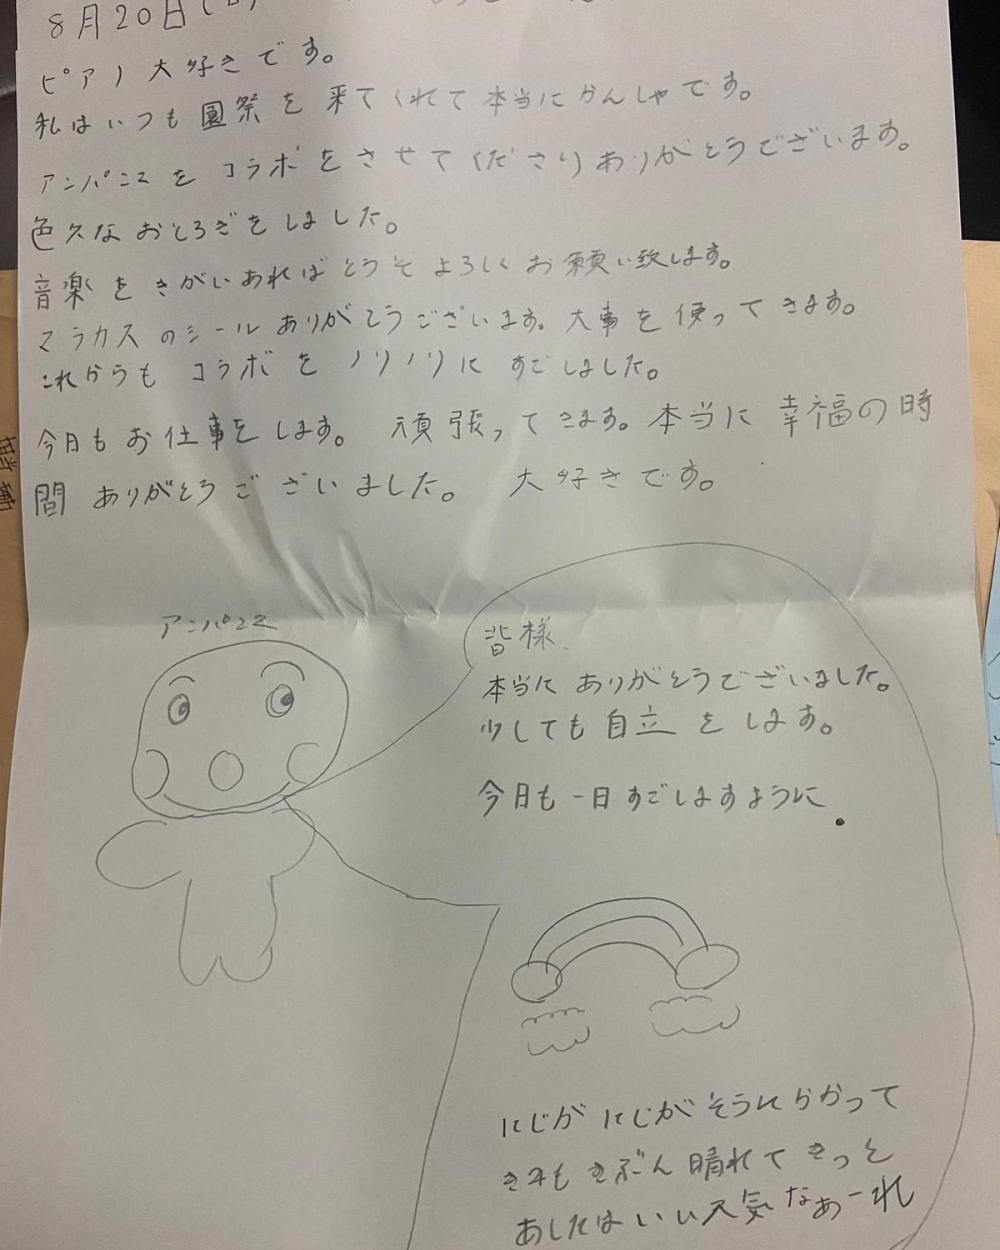 8月20日(日)
ピアノ大好きです。
私はいつも園祭を来てくれて本当にかんしゃです。
アンパニマをコラボをさせてくださりありがとうございます。
色久なおとろぎをしました。
音楽をきがいあればどうぞよろしくお願い致します。
マラカスのシールありがとうございます。大事を使ってきます。
これからもコラボをノリノリにすごしました。
今日もお仕事をします。 頑張ってきます。本当に幸福の時
間ありがとうございました。 大好きです。
アンパニマ
皆様
本当にありがとうございました。
少しても自立をします。
今日も一日すごしますように
にじがにじがそらにかかって
きみもきぶん晴れてきっと
あしたはいい天気なぁーれ